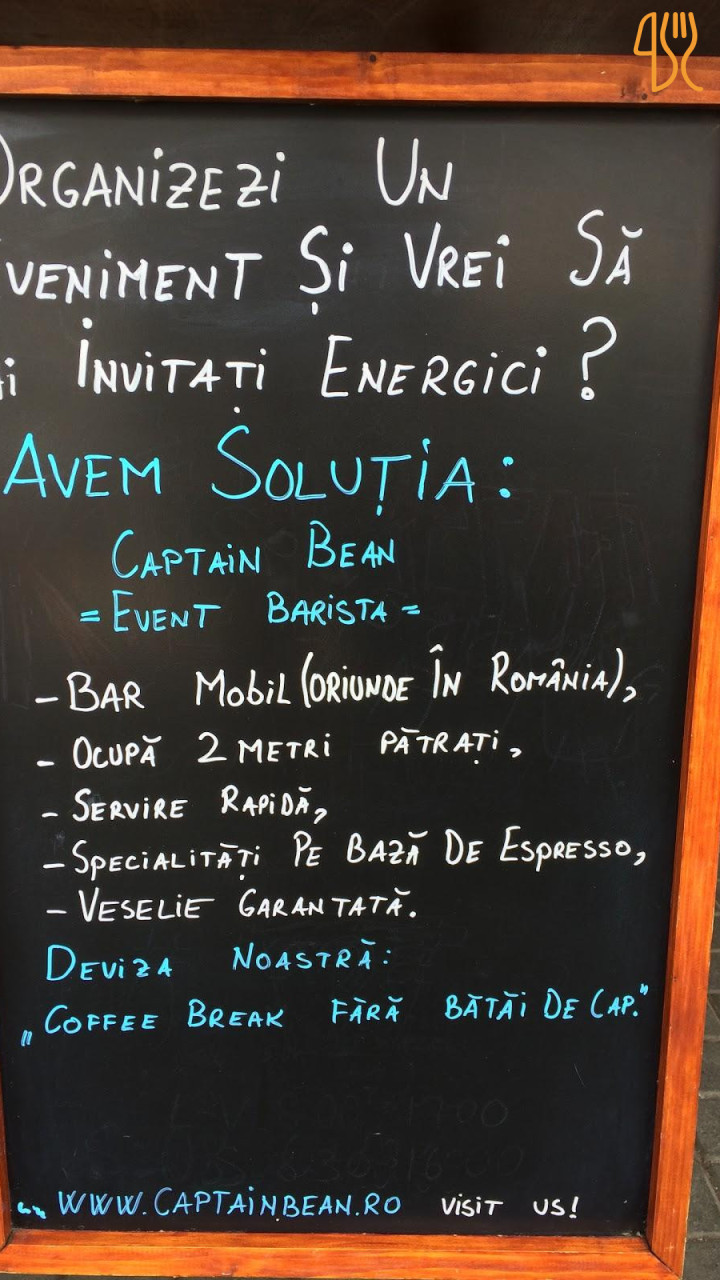 ORGANIZEZI UN
EVENIMENT ȘI VREI SĂ
AI INVITAȚI ENERGICI?
AVEM SOLUȚIA:
CAPTAIN BEAN
= EVENT BARISTA =
- BAR MOBIL (ORIUNDE ÎN ROMÂNIA),
- OCUPĂ 2 METRI PĂTRAȚI,
- SERVIRE RAPIDĂ,
- SPECIALITĂȚI PE BAZĂ DE ESPRESSO,
- VESELIE GARANTATĂ.
DEVIZA NOASTRĂ:
„COFFEE BREAK FĂRĂ BĂTĂI DE CAP."
WWW.CAPTAINBEAN.RO VISIT US!